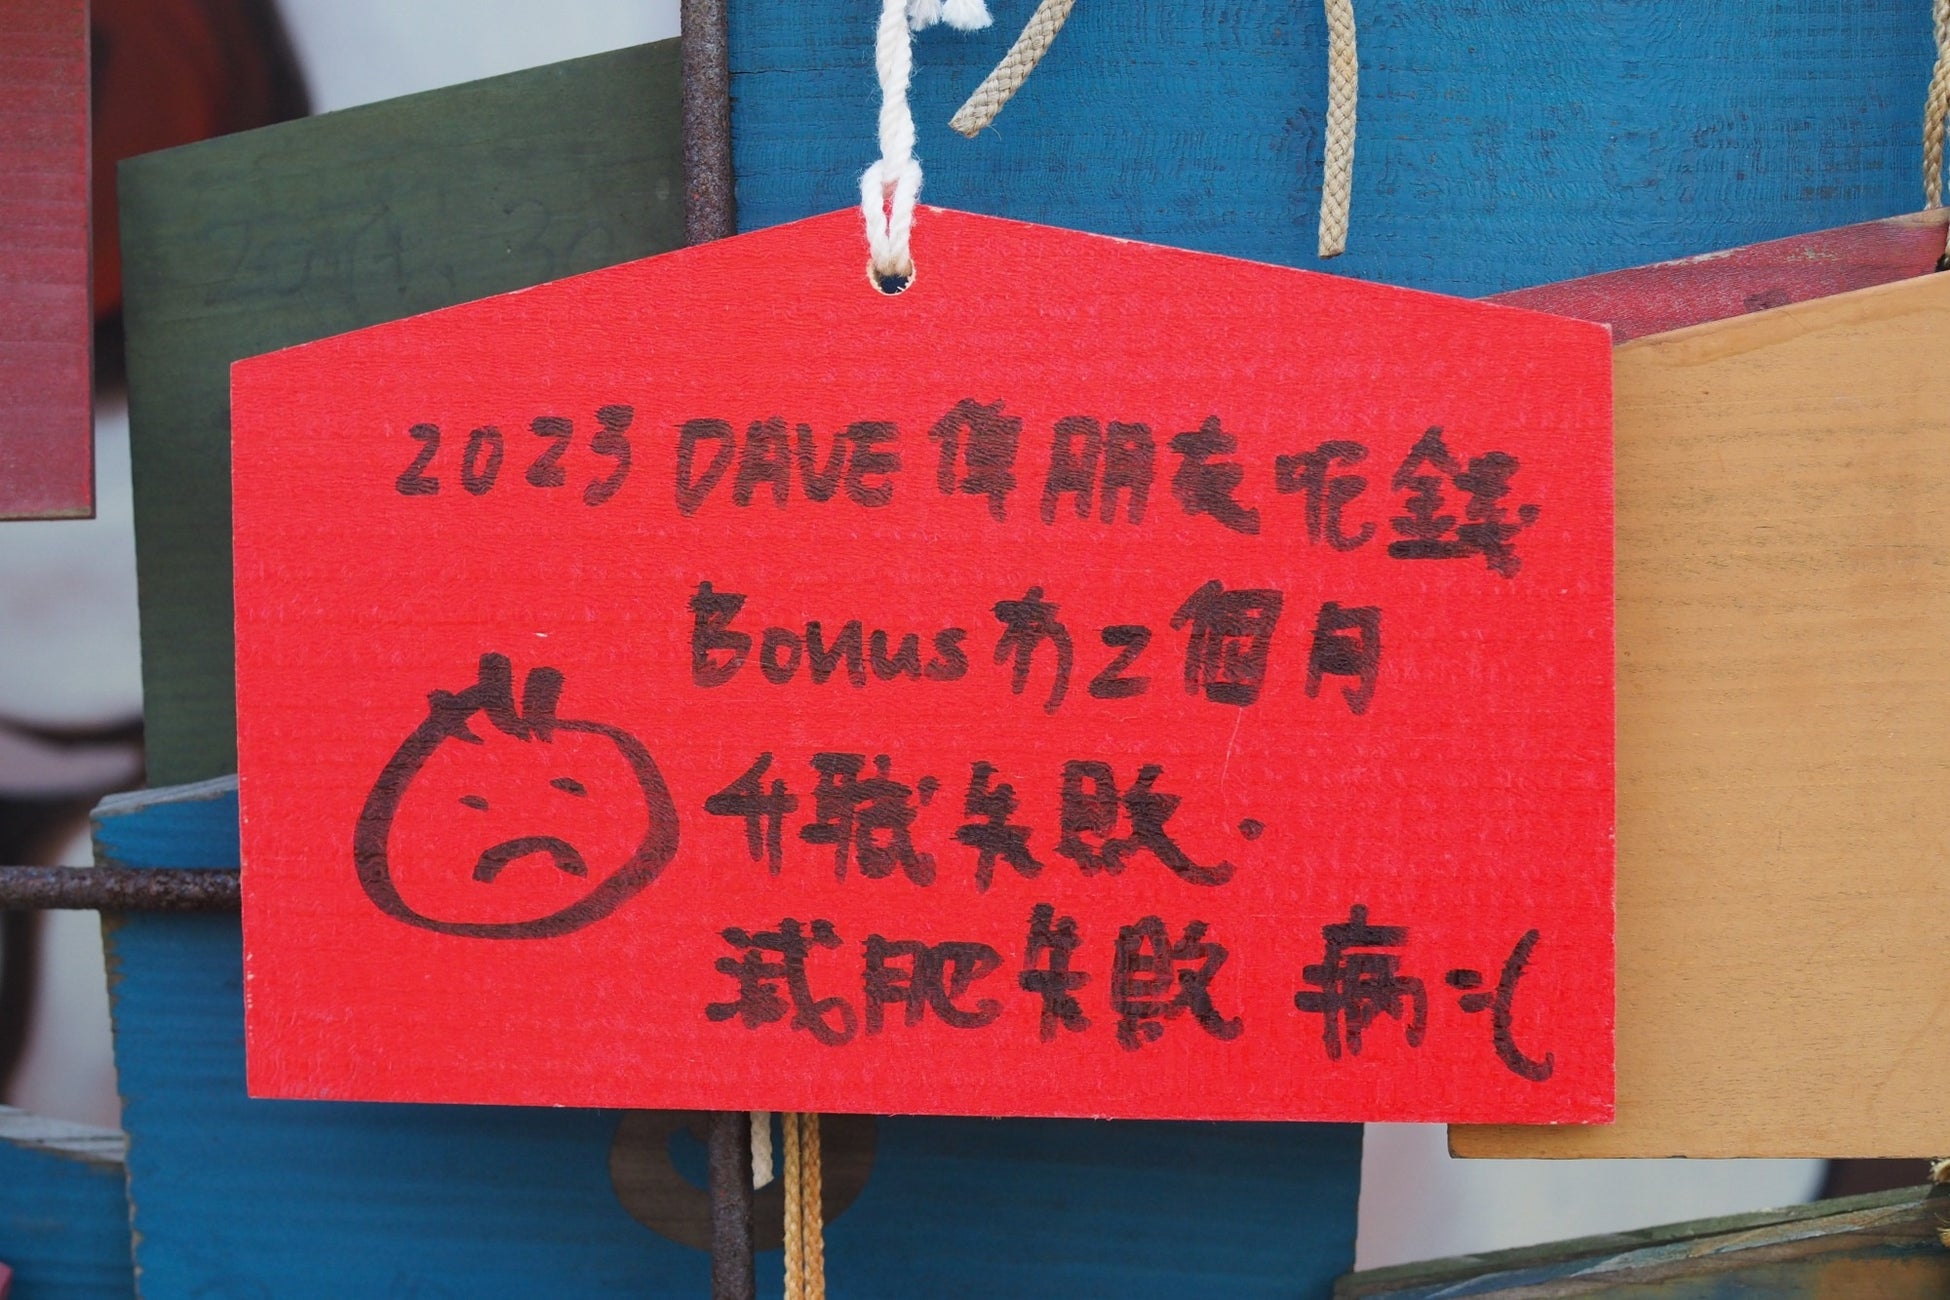 2023 DAVE 俾朋友呃錢
Bonus 冇2個月
升職失敗.
減肥失敗 病=(